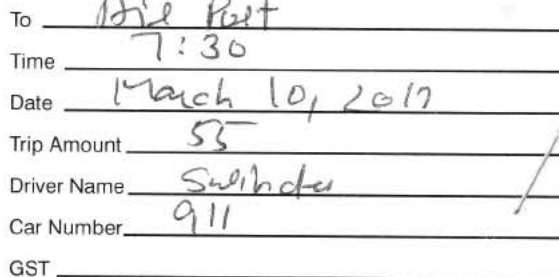 To Air Port
Time 7:30
Date March 10, 2017
Trip Amount 55
Driver Name
Car Number 911
GST